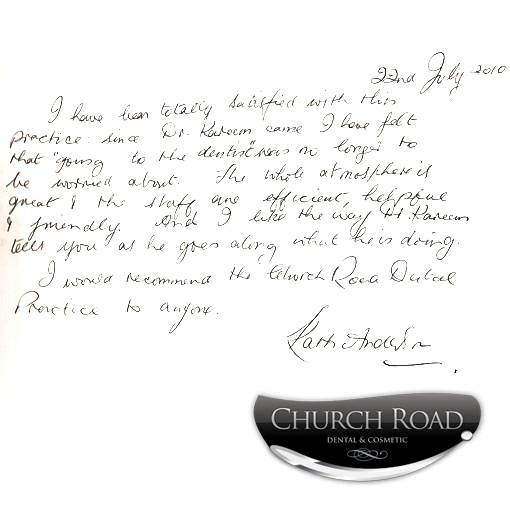 22nd July 2010
I have been totally satisfied with this
practice. since Dr. Kareem came I have felt
that "going to the dentist" was no longer to
be worried about. The whole atmosphere is
great & the staff are efficient, helpful
& friendly. And I like the way Dr. Kareem
tells you as he goes along what he is doing.
I would recommend the Church Road Dental
Practice to anyone.
Anderson
CHURCH ROAD
DENTAL & COSMETIC